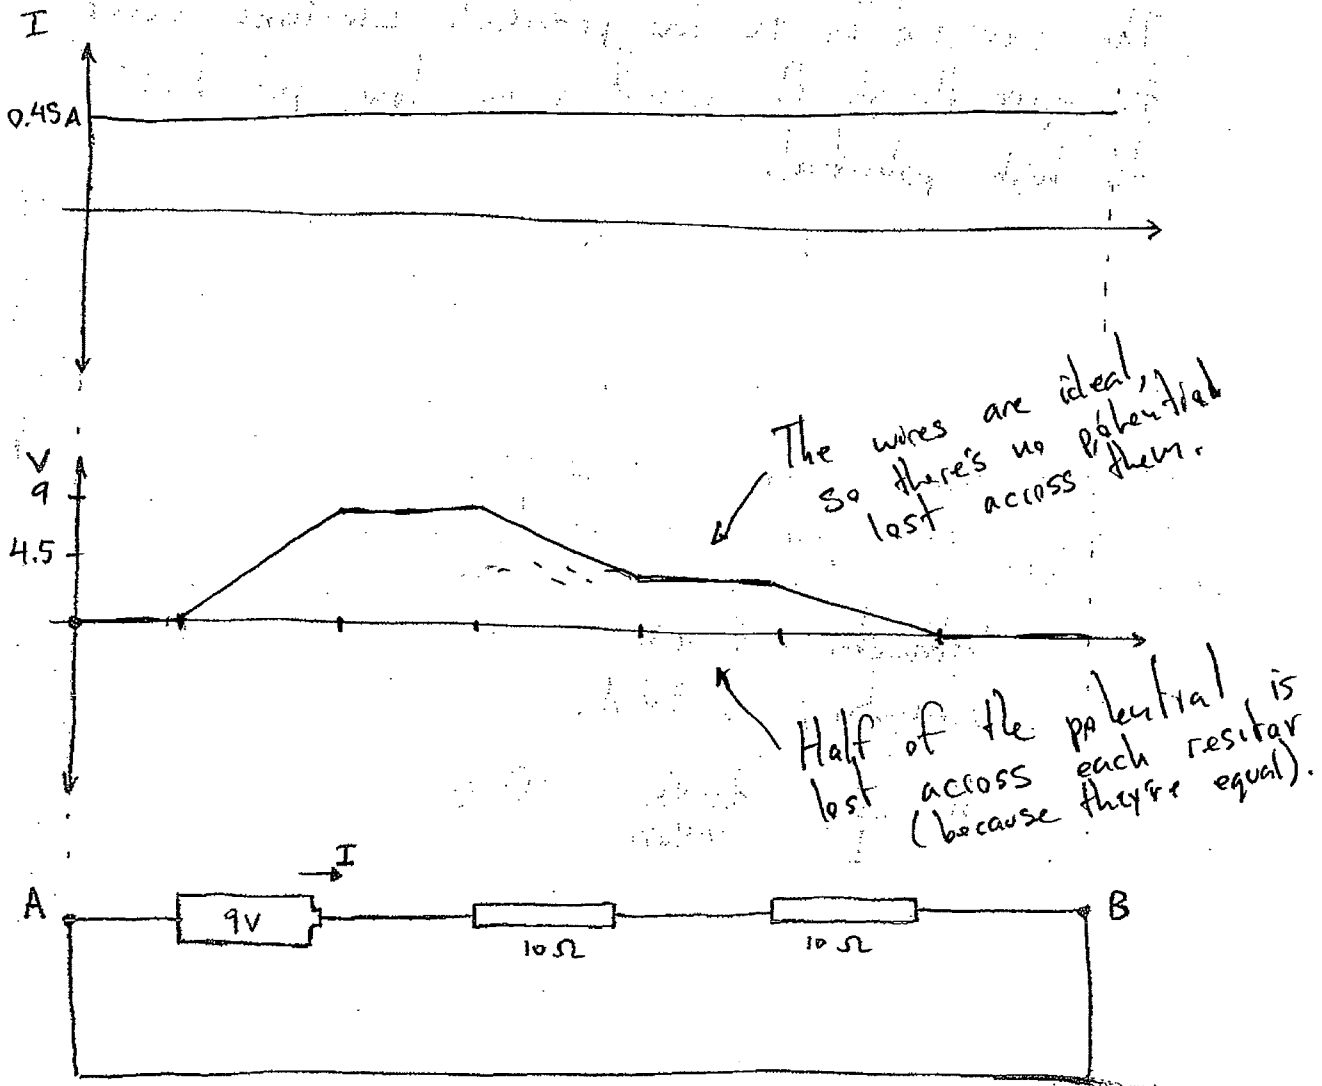 I
0.45A
The wires are ideal,
so there's no potential
lost across them.
V
9
4.5
Half of the potential is
lost across each resitor
(because they're equal).
I
A
9V
10Ω
10Ω
B